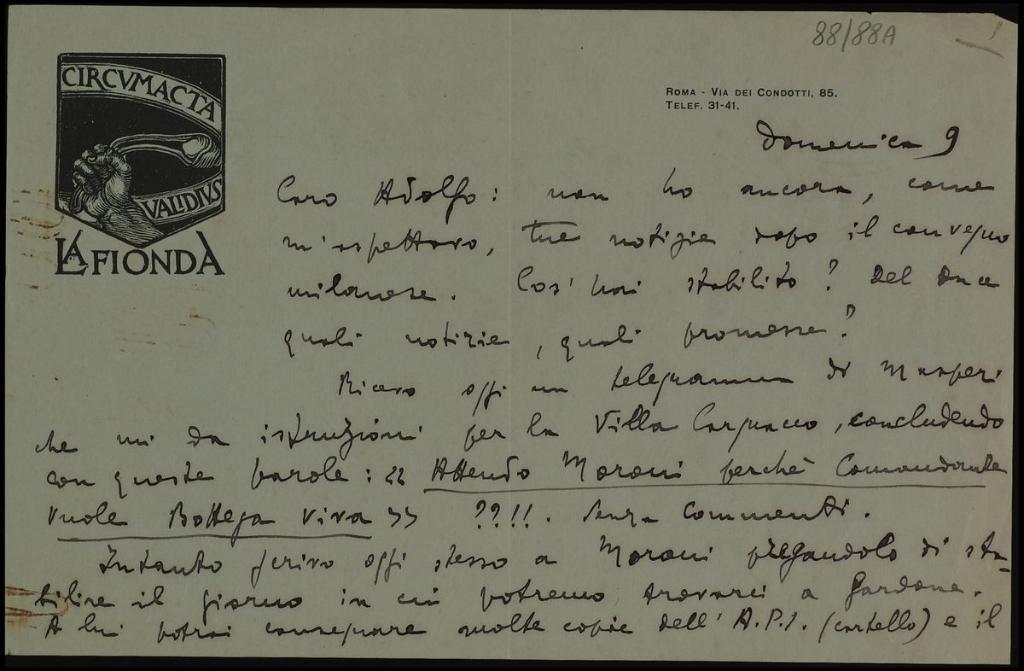 88/88A
1
CIRCVMACTA
VALIDIVS
LA FIONDA
ROMA - VIA DEI CONDOTTI, 85.
TELEF. 31-41.
Domenica 9
Caro Adolfo: non ho ancora, come
m'aspettavo, tue notizie dopo il convegno
milanese. Cos'hai stabilito? Del Duce
quali notizie, quali promesse?
Ricevo oggi un telegramma di Masperi
che mi da istruzioni per la Villa Cargnacco, concludendo
con queste parole: << Attendo Moroni perchè Comandante
vuole Bottega Viva >> ??!!. Senza Commenti.
Intanto scrivo oggi stesso a Moroni pregandolo di sta-
bilire il giorno in cui potremo trovarci a Gardone.
A lui potrai consegnare molte copie dell'A.P.I. (cartello) e il